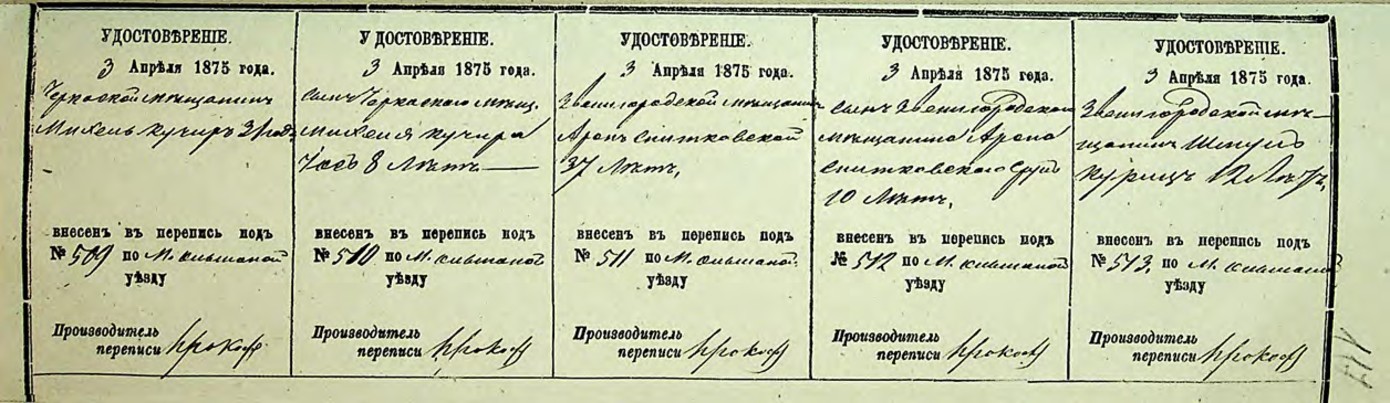 УДОСТОВѢРЕНІЕ.
3 Апрѣля 1875 года.
Черкаской мѣщанинъ
Михель Кучиръ
внесенъ въ перепись подъ
№ 509 по М. Ольшаной
уѣзду
Производитель
переписи
УДОСТОВѢРЕНІЕ.
3 Апрѣля 1875 года.
сынъ Черкаского мѣщ.
Михеля Кучира
8 Лѣтъ
внесенъ въ перепись подъ
№ 510 по М. Ольшаной
уѣзду
Производитель
переписи
УДОСТОВѢРЕНІЕ.
3 Апрѣля 1875 года.
Звенигородской мѣщанинъ
Аронъ Спитковской
37 Лѣтъ,
внесенъ въ перепись подъ
№ 511 по М. Ольшаной
уѣзду
Производитель
переписи
УДОСТОВѢРЕНІЕ.
3 Апрѣля 1875 года.
сынъ Звенигородского
мѣщанина Арона
Спитковского Сруль
10 Лѣтъ,
внесенъ въ перепись подъ
№ 512 по М. Ольшаной
уѣзду
Производитель
переписи
УДОСТОВѢРЕНІЕ.
3 Апрѣля 1875 года.
Звенигородской мѣ—
щанинъ Шмуль
12 Лѣтъ,
внесенъ въ перепись подъ
№ 513, по М. Ольшаной
уѣзду
Производитель
переписи